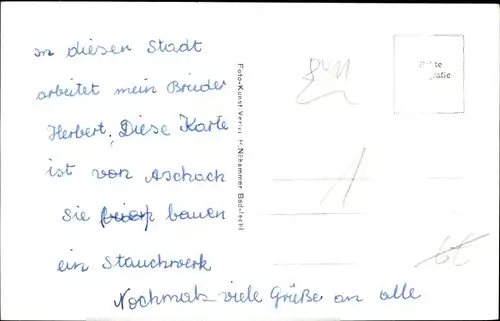 in diesen Stadt
arbeitet mein Bruder
Herbert. Diese Karte
ist von Aschach
Sie bauen
ein Stauchwerk
Nochmals viele Grüße an alle
Foto-Kunst Verlag H. Nilhammer, Bad-Ischl
Echte
grafie